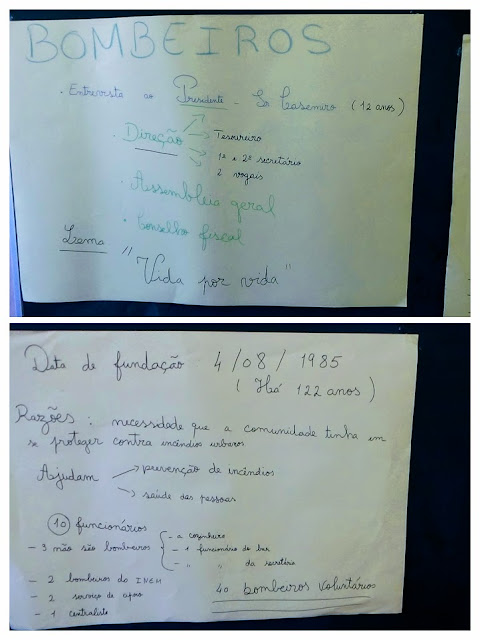 BOMBEIROS
. Entrevista ao Presidente - So Casemiro (12 anos)
. Direção
Tesoureiro
1º e 2º secretário
2 vogais
. Assembleia geral
. Conselho fiscal
Lema
"Vida por vida"
Data de fundação 4/08/1985
(Há 122 anos)
Razões : necessidade que a comunidade tinha em
se proteger contra incêndios urbanos
Ajudam
prevenção de incêndios
saúde das pessoas
10 funcionários
- 3 não são bombeiros
- a cozinheira
- 1 funcionário do bar
- " " da secretária
- 2 bombeiros do INEM
- 2 serviço de apoio
- 1 centralista
40 bombeiros voluntários